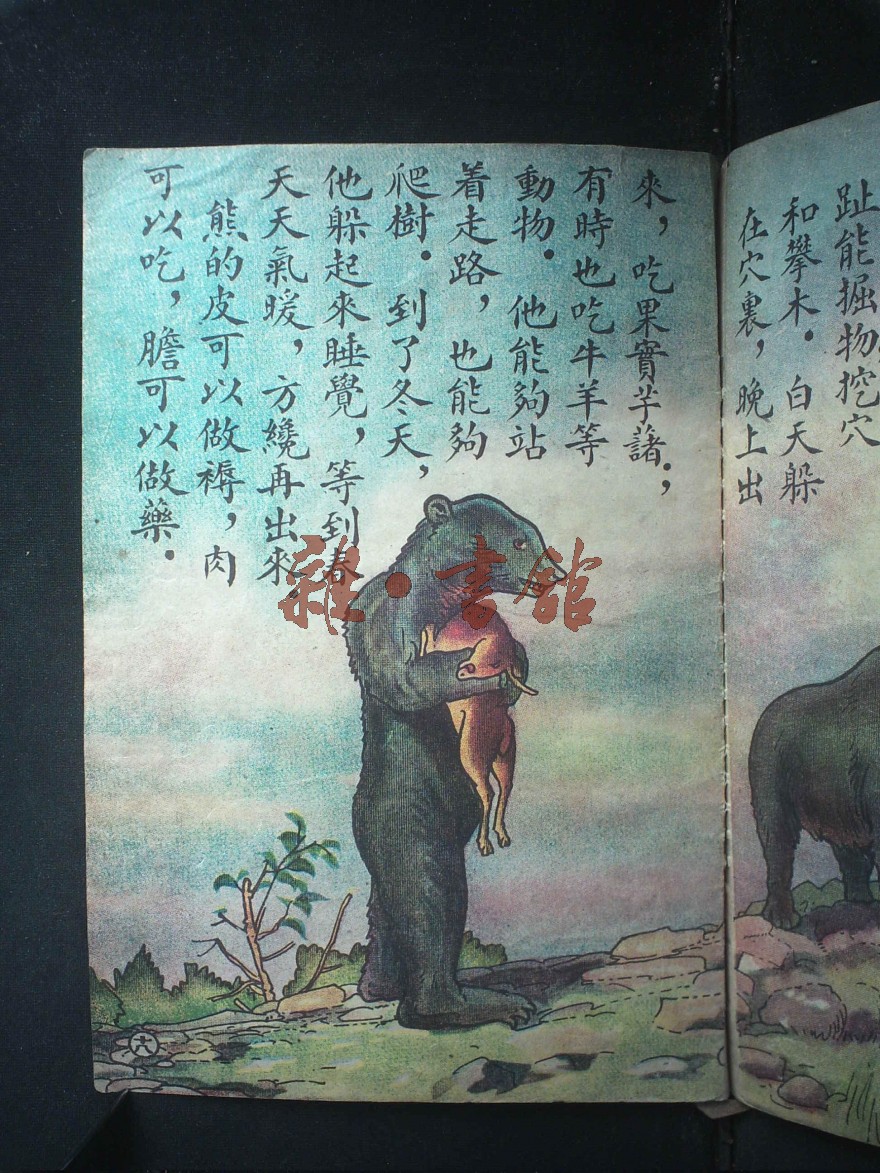 趾能掘物挖穴
和攀木．白天躲
在穴裏，晚上出
來，吃果實芋藷．，
有時也吃牛羊等
動物．他能夠站
着走路，也能夠
爬樹．到了冬天，
他躲起來睡覺，等到春
天天氣暖，方纔再出來．
熊的皮可以做褥，肉
可以吃，膽可以做藥．
雜·書館
六